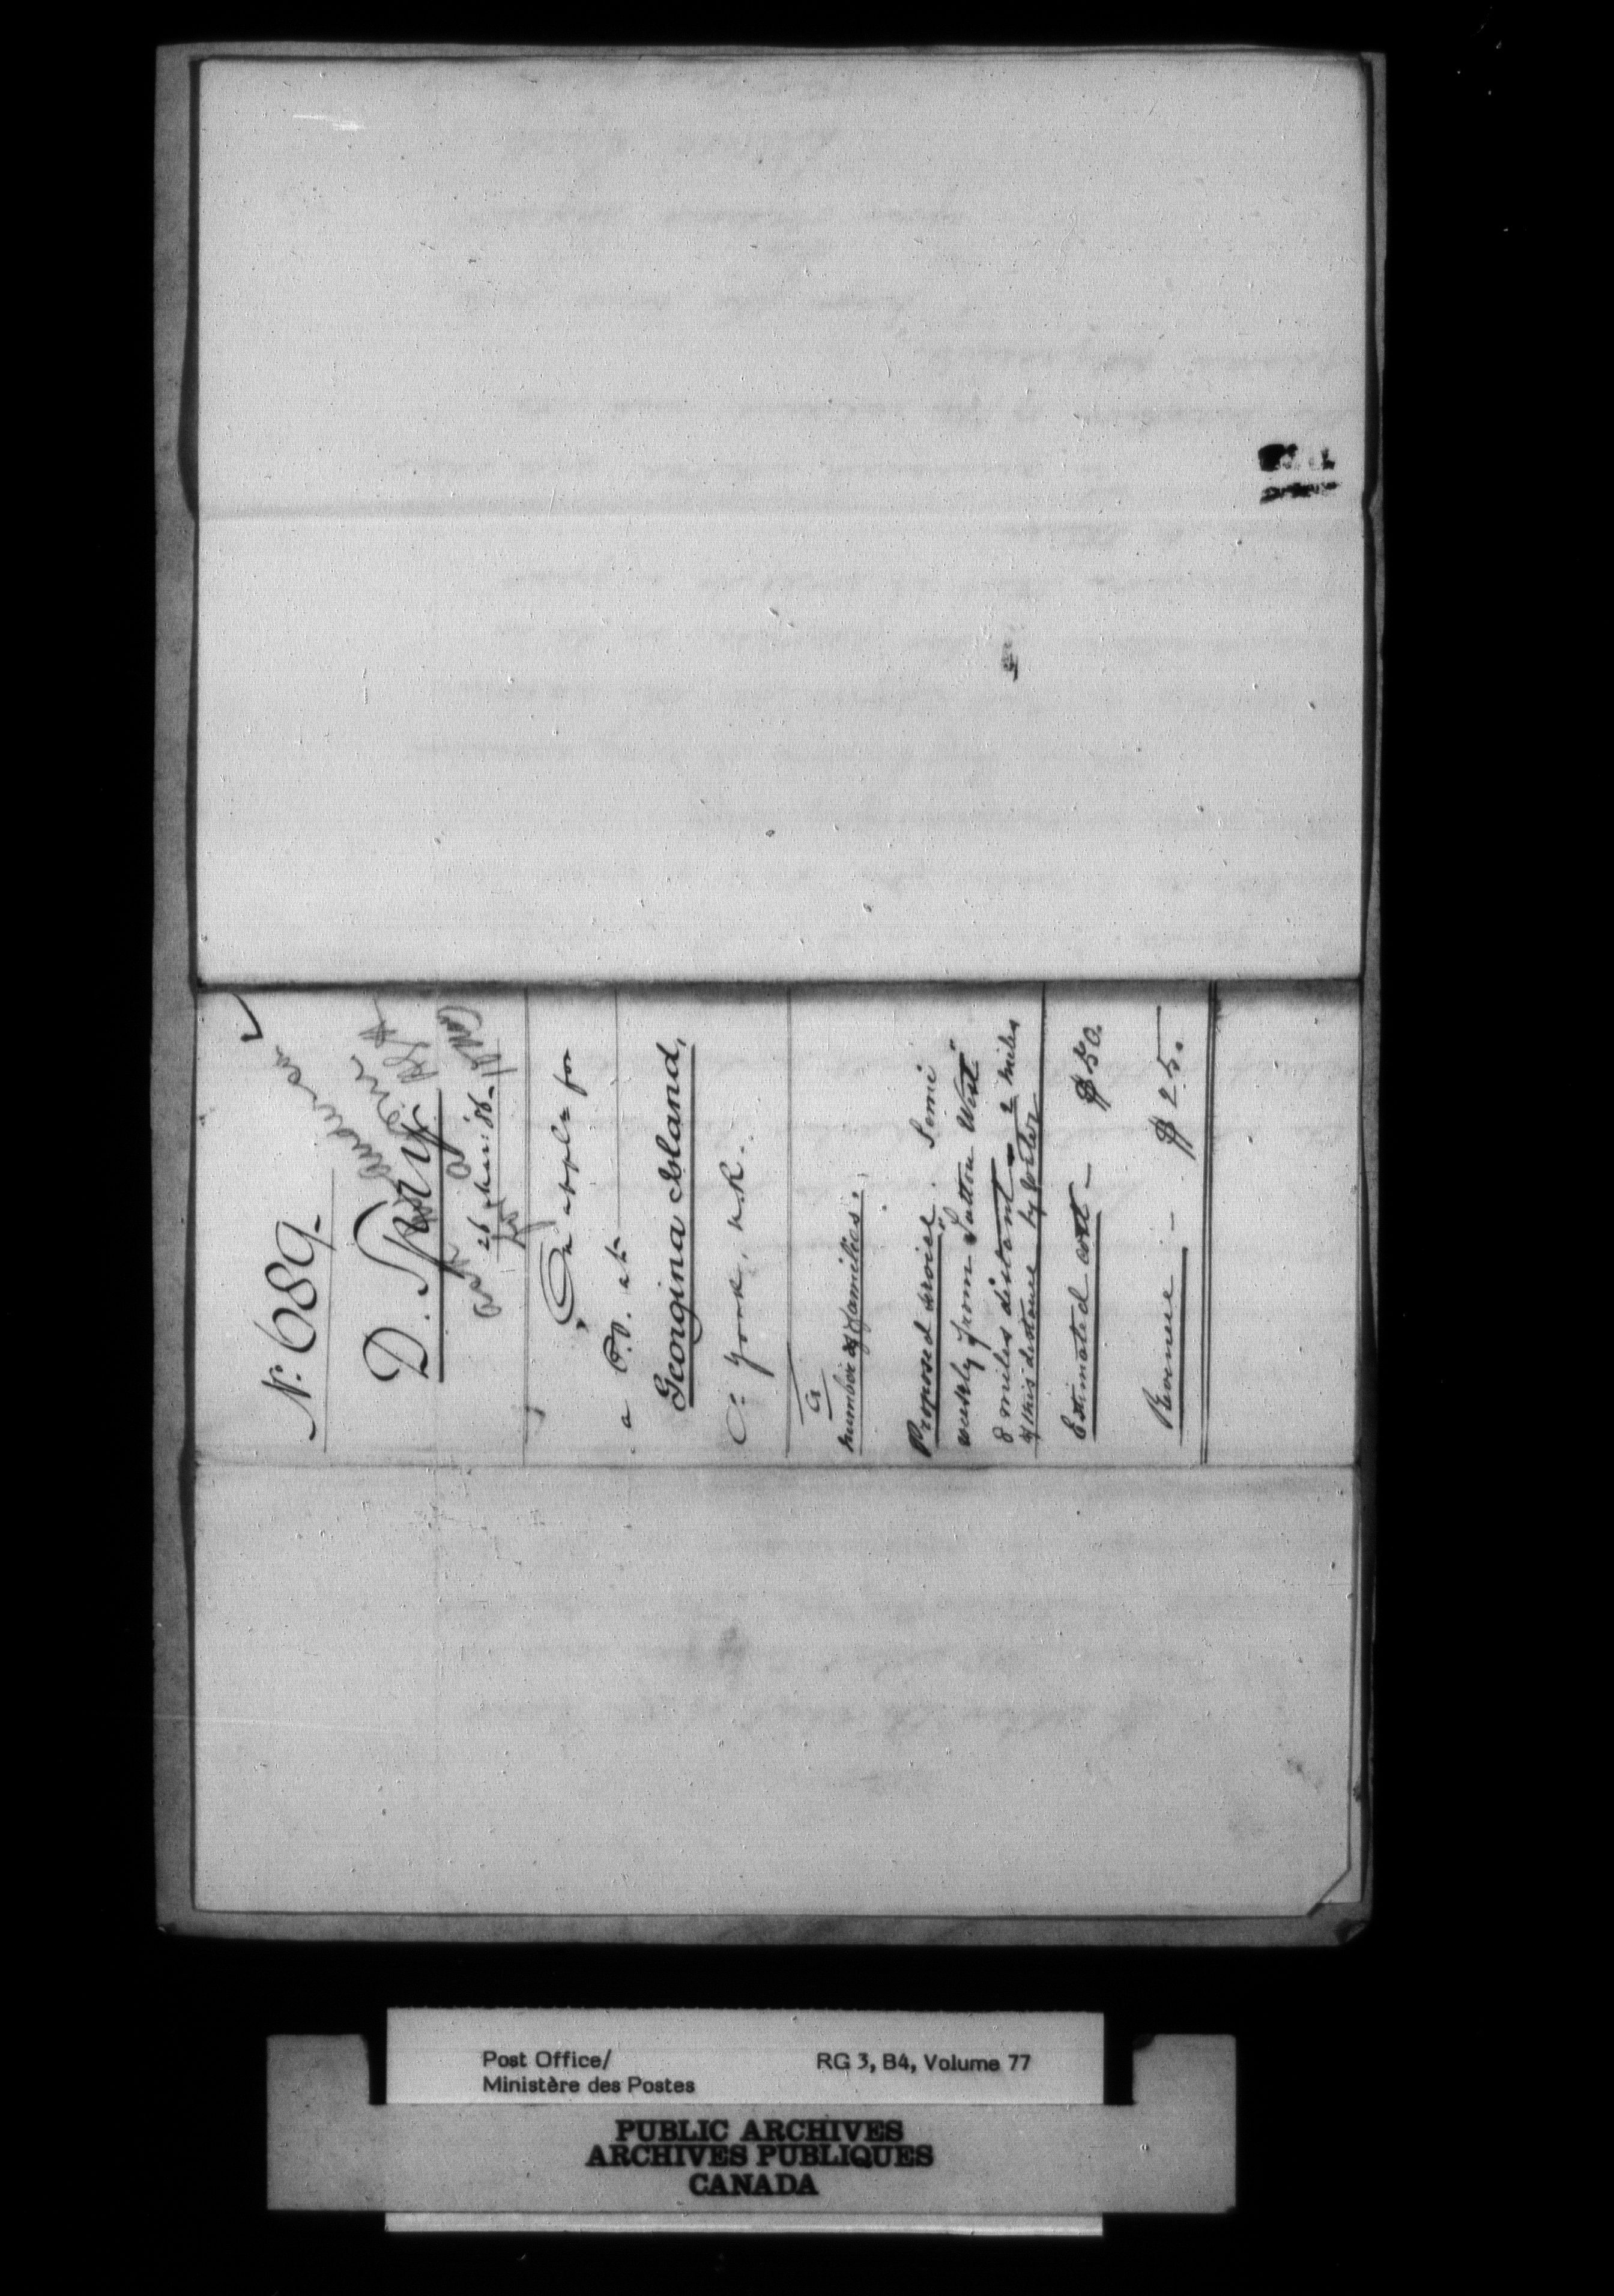 No. 689-
D. Spry
26 Mar: 86-
On appln for
a P.O. at
Georgina Island,
Co: York, N.R.
a
number of families.
Proposed service Semi
weekly from "Sutton West"
8 miles distant - 2 miles
of this distance by water
Estimated cost - $50.
Revenue - $25.
Post Office/
Ministère des Postes
RG 3, B4, Volume 77
PUBLIC ARCHIVES
ARCHIVES PUBLIQUES
CANADA